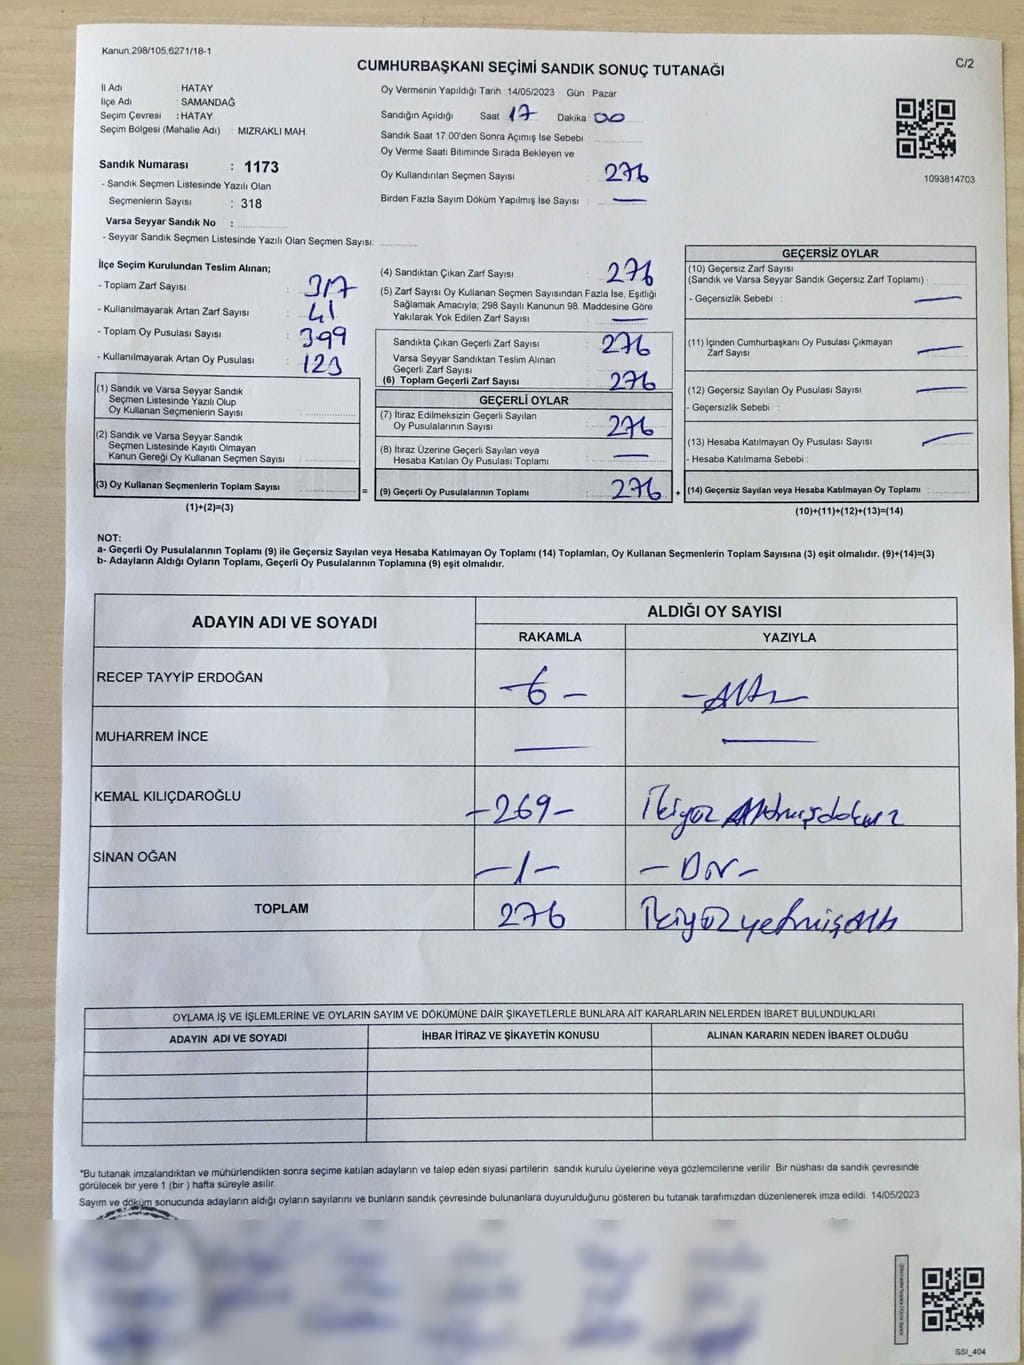 Kanun.298/105,6271/18-1
C/2
CUMHURBAŞKANI SEÇİMİ SANDIK SONUÇ TUTANAĞI
İl Adı : HATAY
İlçe Adı : SAMANDAĞ
Seçim Çevresi : HATAY
Seçim Bölgesi (Mahalle Adı) : MIZRAKLI MAH.
Sandık Numarası : 1173
- Sandık Seçmen Listesinde Yazılı Olan
Seçmenlerin Sayısı : 318
Varsa Seyyar Sandık No :
- Seyyar Sandık Seçmen Listesinde Yazılı Olan Seçmen Sayısı:
Oy Vermenin Yapıldığı Tarih : 14/05/2023 Gün : Pazar
Sandığın Açıldığı Saat 17 Dakika 00
Sandık Saat 17:00'den Sonra Açımış İse Sebebi :
Oy Verme Saati Bitiminde Sırada Bekleyen ve
Oy Kullandırılan Seçmen Sayısı : 276
Birden Fazla Sayım Döküm Yapılmış İse Sayısı : —
1093814703
İlçe Seçim Kurulundan Teslim Alınan;
- Toplam Zarf Sayısı : 317
- Kullanılmayarak Artan Zarf Sayısı : 41
- Toplam Oy Pusulası Sayısı : 399
- Kullanılmayarak Artan Oy Pusulası : 123
(1) Sandık ve Varsa Seyyar Sandık
Seçmen Listesinde Yazılı Olup
Oy Kullanan Seçmenlerin Sayısı :
(2) Sandık ve Varsa Seyyar Sandık
Seçmen Listesinde Kayıtlı Olmayan
Kanun Gereği Oy Kullanan Seçmen Sayısı :
(3) Oy Kullanan Seçmenlerin Toplam Sayısı : =
(1)+(2)=(3)
(4) Sandıktan Çıkan Zarf Sayısı : 276
(5) Zarf Sayısı Oy Kullanan Seçmen Sayısından Fazla İse, Eşitliği
Sağlamak Amacıyla; 298 Sayılı Kanunun 98. Maddesine Göre
Yakılarak Yok Edilen Zarf Sayısı : —
Sandıkta Çıkan Geçerli Zarf Sayısı : 276
Varsa Seyyar Sandıktan Teslim Alınan
Geçerli Zarf Sayısı :
(6) Toplam Geçerli Zarf Sayısı : 276
GEÇERLİ OYLAR
(7) İtiraz Edilmeksizin Geçerli Sayılan
Oy Pusulalarının Sayısı : 276
(8) İtiraz Üzerine Geçerli Sayılan veya
Hesaba Katılan Oy Pusulası Toplamı : —
(9) Geçerli Oy Pusulalarının Toplamı : 276 +
GEÇERSİZ OYLAR
(10) Geçersiz Zarf Sayısı
(Sandık ve Varsa Seyyar Sandık Geçersiz Zarf Toplamı) :
- Geçersizlik Sebebi : —
(11) İçinden Cumhurbaşkanı Oy Pusulası Çıkmayan
Zarf Sayısı : —
(12) Geçersiz Sayılan Oy Pusulası Sayısı : —
- Geçersizlik Sebebi :
(13) Hesaba Katılmayan Oy Pusulası Sayısı : —
- Hesaba Katılmama Sebebi :
(14) Geçersiz Sayılan veya Hesaba Katılmayan Oy Toplamı :
(10)+(11)+(12)+(13)=(14)
NOT:
a- Geçerli Oy Pusulalarının Toplamı (9) ile Geçersiz Sayılan veya Hesaba Katılmayan Oy Toplamı (14) Toplamları, Oy Kullanan Seçmenlerin Toplam Sayısına (3) eşit olmalıdır. (9)+(14)=(3)
b- Adayların Aldığı Oyların Toplamı, Geçerli Oy Pusulalarının Toplamına (9) eşit olmalıdır.
ADAYIN ADI VE SOYADI ALDIĞI OY SAYISI
RAKAMLA YAZIYLA
RECEP TAYYİP ERDOĞAN -6- -Altı-
MUHARREM İNCE — —
KEMAL KILIÇDAROĞLU -269- İkiyüz Altmışdokuz
SİNAN OĞAN -1- -BİR-
TOPLAM 276 İkiyüzyetmişaltı
OYLAMA İŞ VE İŞLEMLERİNE VE OYLARIN SAYIM VE DÖKÜMÜNE DAİR ŞİKAYETLERLE BUNLARA AİT KARARLARIN NELERDEN İBARET BULUNDUKLARI
ADAYIN ADI VE SOYADI İHBAR İTİRAZ VE ŞİKAYETİN KONUSU ALINAN KARARIN NEDEN İBARET OLDUĞU
*Bu tutanak imzalandıktan ve mühürlendikten sonra seçime katılan adayların ve talep eden siyasi partilerin sandık kurulu üyelerine veya gözlemcilerine verilir. Bir nüshası da sandık çevresinde
görülecek bir yere 1 (bir ) hafta süreyle asılır.
Sayım ve döküm sonucunda adayların aldığı oyların sayılarını ve bunların sandık çevresinde bulunanlara duyurulduğunu gösteren bu tutanak tarafımızdan düzenlenerek imza edildi. 14/05/2023
SSI_404